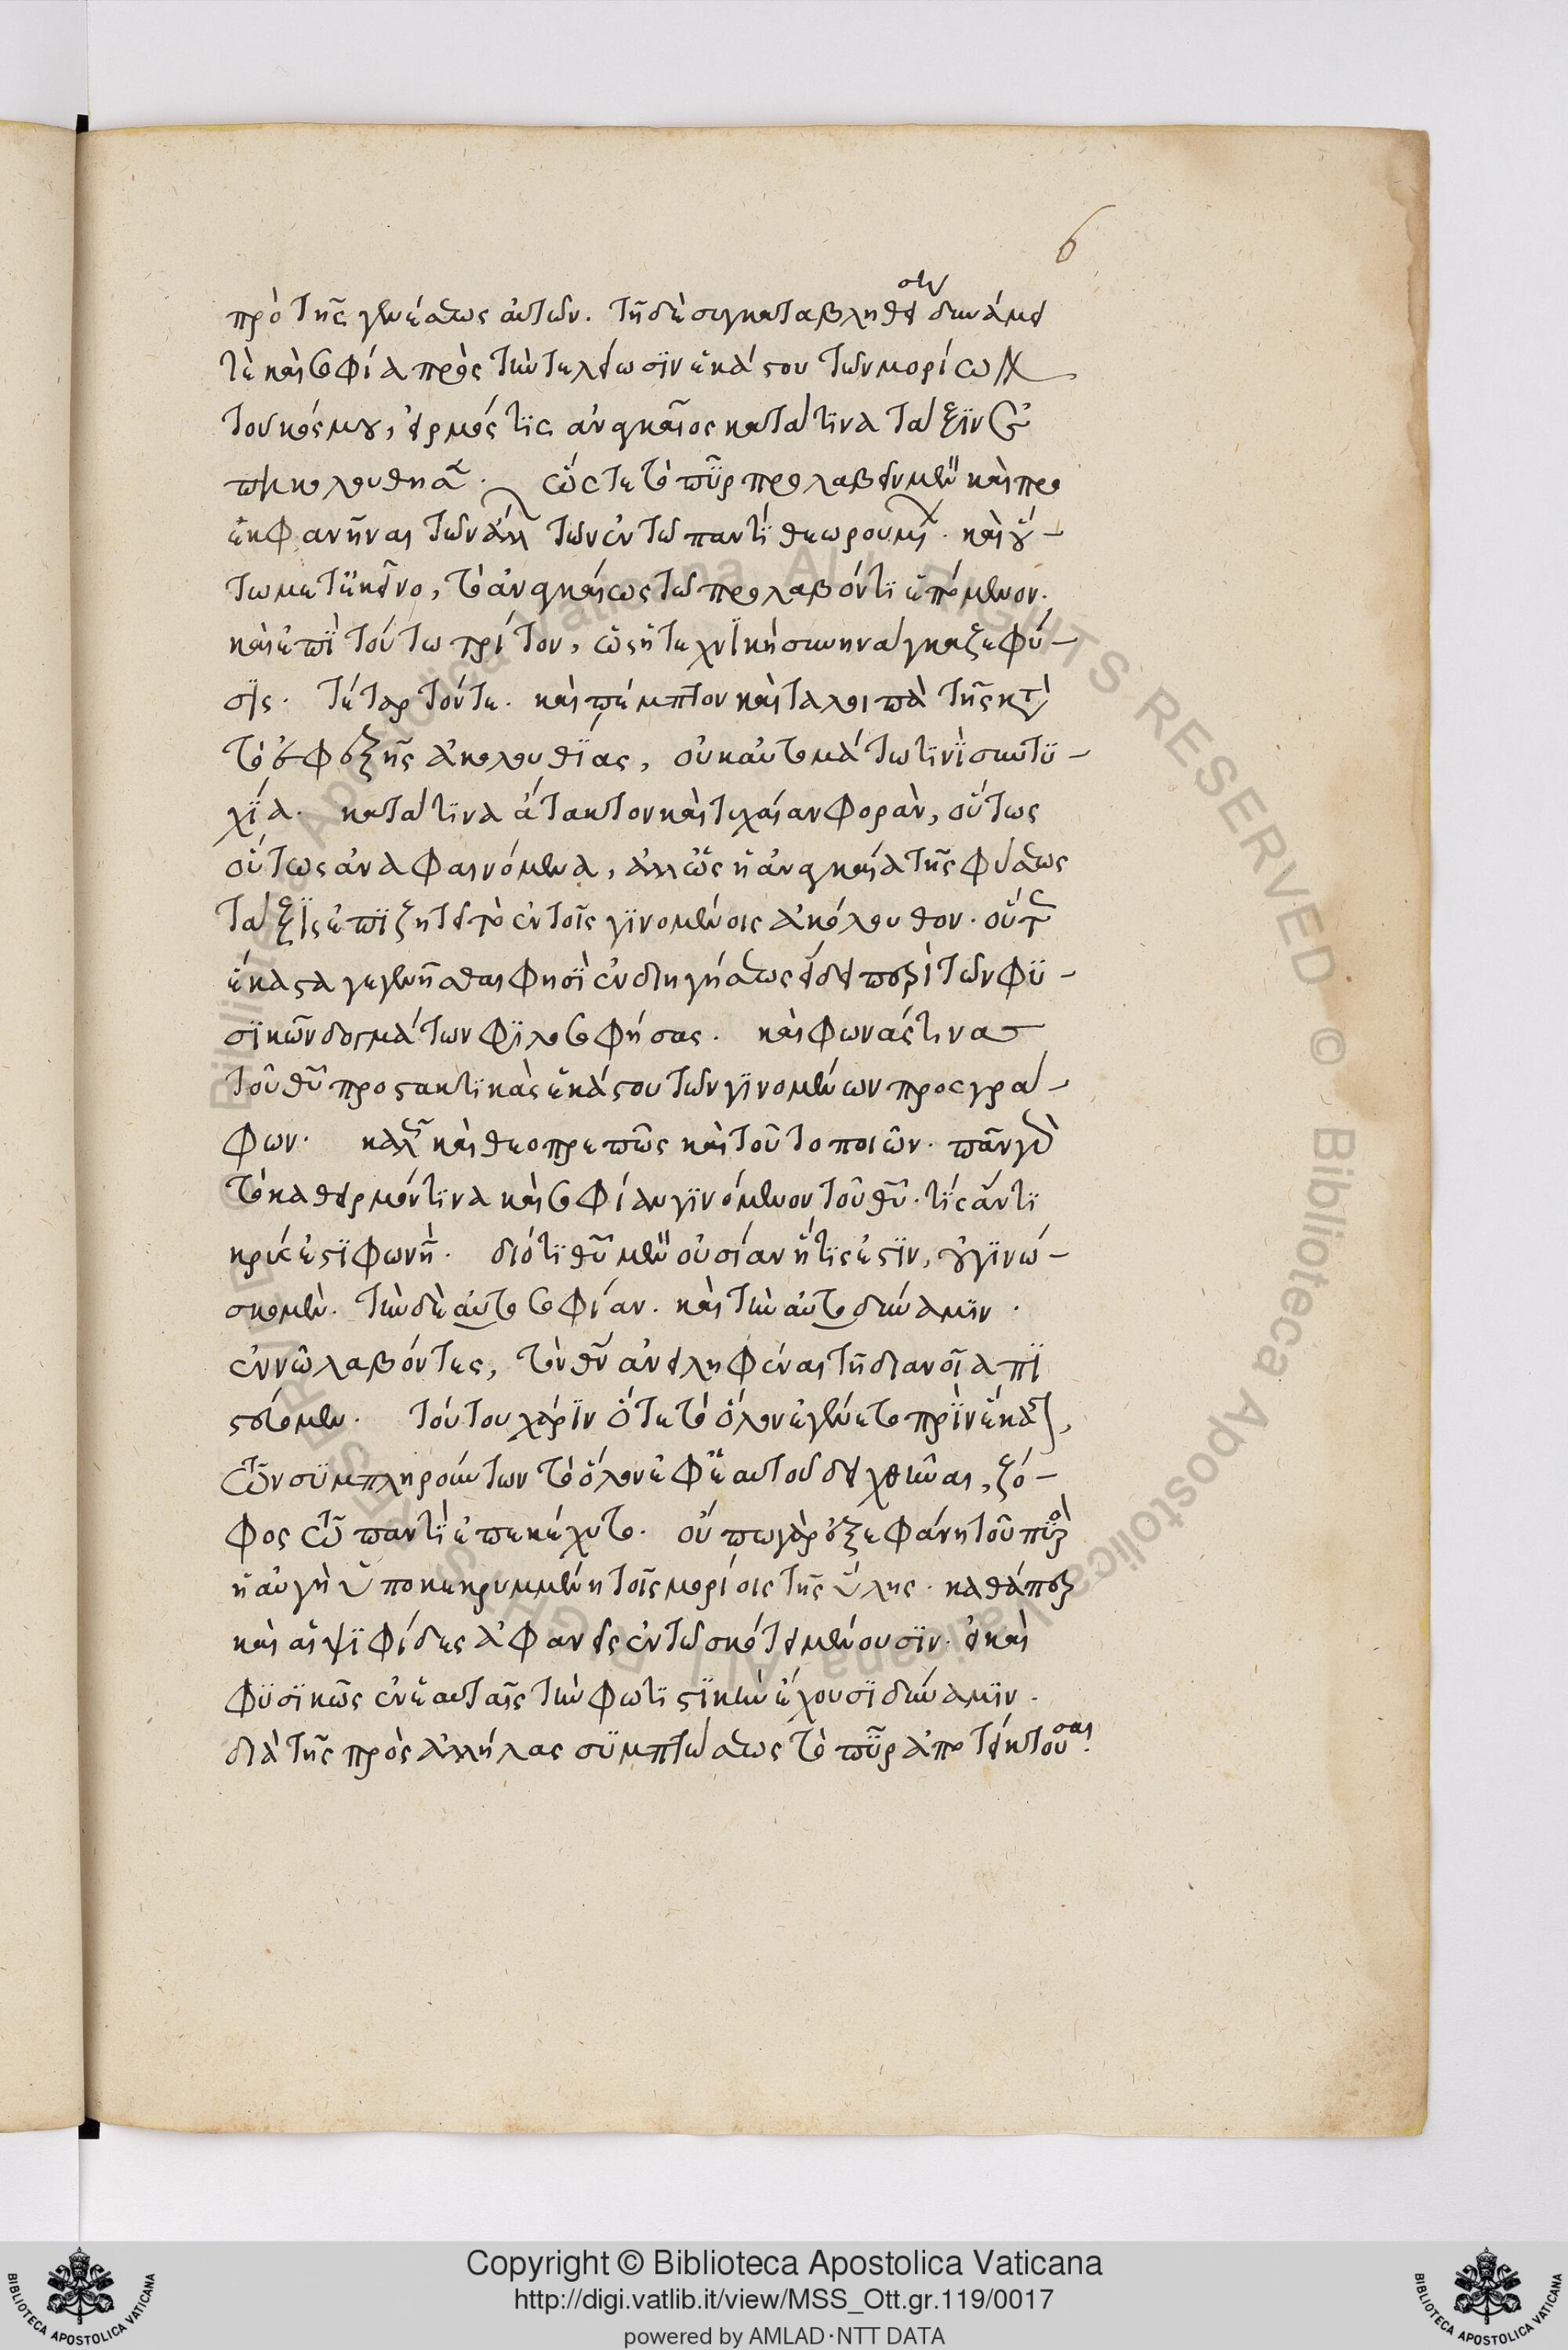 6
πρὸ τῆς γενέσεως αὐτῶν. τῇ δὲ συγκαταβληθείσῃ δυνάμει
τὲ καὶ σοφία πρὸς τὴν τελείωσϊν ἑκάστου τῶν μορίων
τοῦ κόσμου, εἱρμός τϊς ἀναγκαῖος κατά τϊνα τάξϊν
ἐπηκολούθησεν. ὥςτε τὸ πῦρ προλαβεῖν μὲν καὶ προ
εκφανῆναι τῶν ἄλλων τῶν ἐν τῶ παντὶ θεωρουμένων. καὶ οὕ-
τω μετ' ἐκεῖνο, τὸ ἀναγκαίως τῶ προλαβόντϊ ἑπόμενον.
καὶ ἐπὶ τούτω τρίτον, ὡς ἡ τεχνϊκὴ συνηνάγκαζε φύ-
σϊς. τέταρτόν τε. καὶ πέμπτον καὶ τὰ λοιπὰ τῆς κατὰ
τὸ ἐφεξῆς ἀκολουθϊας, οὐκ αὐτομάτω τϊνὶ συντυ-
χϊα. κατά τϊνα ἄτακτον καὶ τυχαίαν φορὰν, οὕτως
οὕτως ἀναφαινόμενα, ἀλλ' ὡς ἡ ἀναγκαία τῆς φύσεως
τάξϊς ἐπϊζητεῖ τὸ ἐν τοῖς γϊνομένοις ἀκόλουθον. οὕτως
ἕκαστα γεγενῆσθαι φησὶ ἐν διηγήσεως εἴδει περὶ τῶν φυ-
σϊκῶν δογμάτων φϊλοσοφήσας. καὶ φωνάς τϊνας
τοῦ θῦ προςτακτϊκὰς ἑκάστου τῶν γϊνομένων προςγρά-
φων. καλῶς καὶ θεοπρεπῶς καὶ τοῦτο ποιῶν. πᾶν γὰρ
τὸ καθ' εἱρμόν τϊνα καὶ σοφίαν γϊνόμενον τοῦ θῦ. τὶς ἄντϊ
κρϊς ἐστὶ φωνή. διότϊ θῦ μὲν οὐσίαν ἥτϊς ἐστϊν, οὐ γϊνώ-
σκομεν. τὴν δὲ αὐτοσοφίαν. καὶ τὴν αὐτοδύναμϊν.
ἐν νῶ λαβόντες, τὸν θν ἀνειληφέναι τῇ διανοϊα πϊ
στεύομεν. τούτου χάρϊν ὅτε τὸ ὅλον ἐγένετο πρὶν ἕκαστον,
τῶν συμπληρούντων τὸ ὅλον ἐφ' ἑαυτοῦ δειχθῆναι, ζό-
φος τῶ παντὶ ἐπεκέχυτο. οὔπω γὰρ ἐξεφάνη τοῦ πυρὸς
ἡ αὐγὴ ὑποκεκρυμμένη τοῖς μορίοις τῆς ὕλης. καθάπερ
καὶ αἱ ψϊφίδες ἀφανεῖς ἐν τῶ σκότει μένουσϊν. εἰ καὶ
φυσϊκῶς ἐν ἑαυταῖς τὴν φωτϊστϊκὴν ἔχουσϊ δύναμϊν.
διὰ τῆς πρὸς ἀλλήλας συμπτώσεως τὸ πῦρ ἀποτείκτουσαι.
Copyright © Biblioteca Apostolica Vaticana
http://digi.vatlib.it/view/MSS_Ott.gr.119/0017
powered by AMLAD·NTT DATA